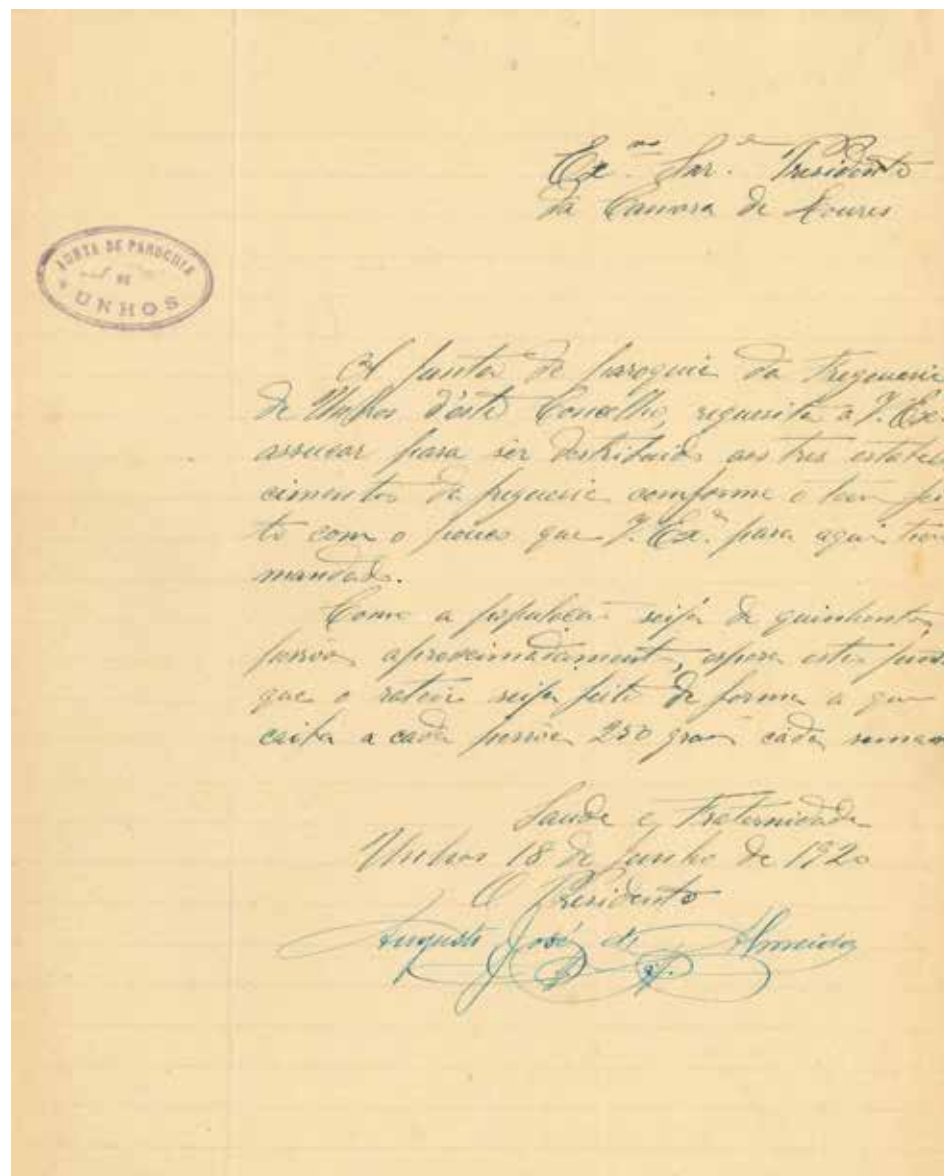 Ex.mo Snr. Presidente
da Camara de Loures
JUNTA DE PAROCHIA
DE
UNHOS
A Junta de paroquia da Freguesia
de Unhos d'este Concelho, requesita a V. Ex.
assucar para ser destribuido aos tres estabele
cimentos da freguesia comforme o tem fei
to com o pouco que V. Ex.a para aqui tem
mandado.
Como a população seija de quinhentas
pessoas aproximadamente, espera esta junta
que o rateio seija feito de forma a que
caiba a cada pessoa 250 gram cada seman
Saude e Fraternidade
Unhos 18 de Junho de 1920
O Presidente
Augusto José de Almeida